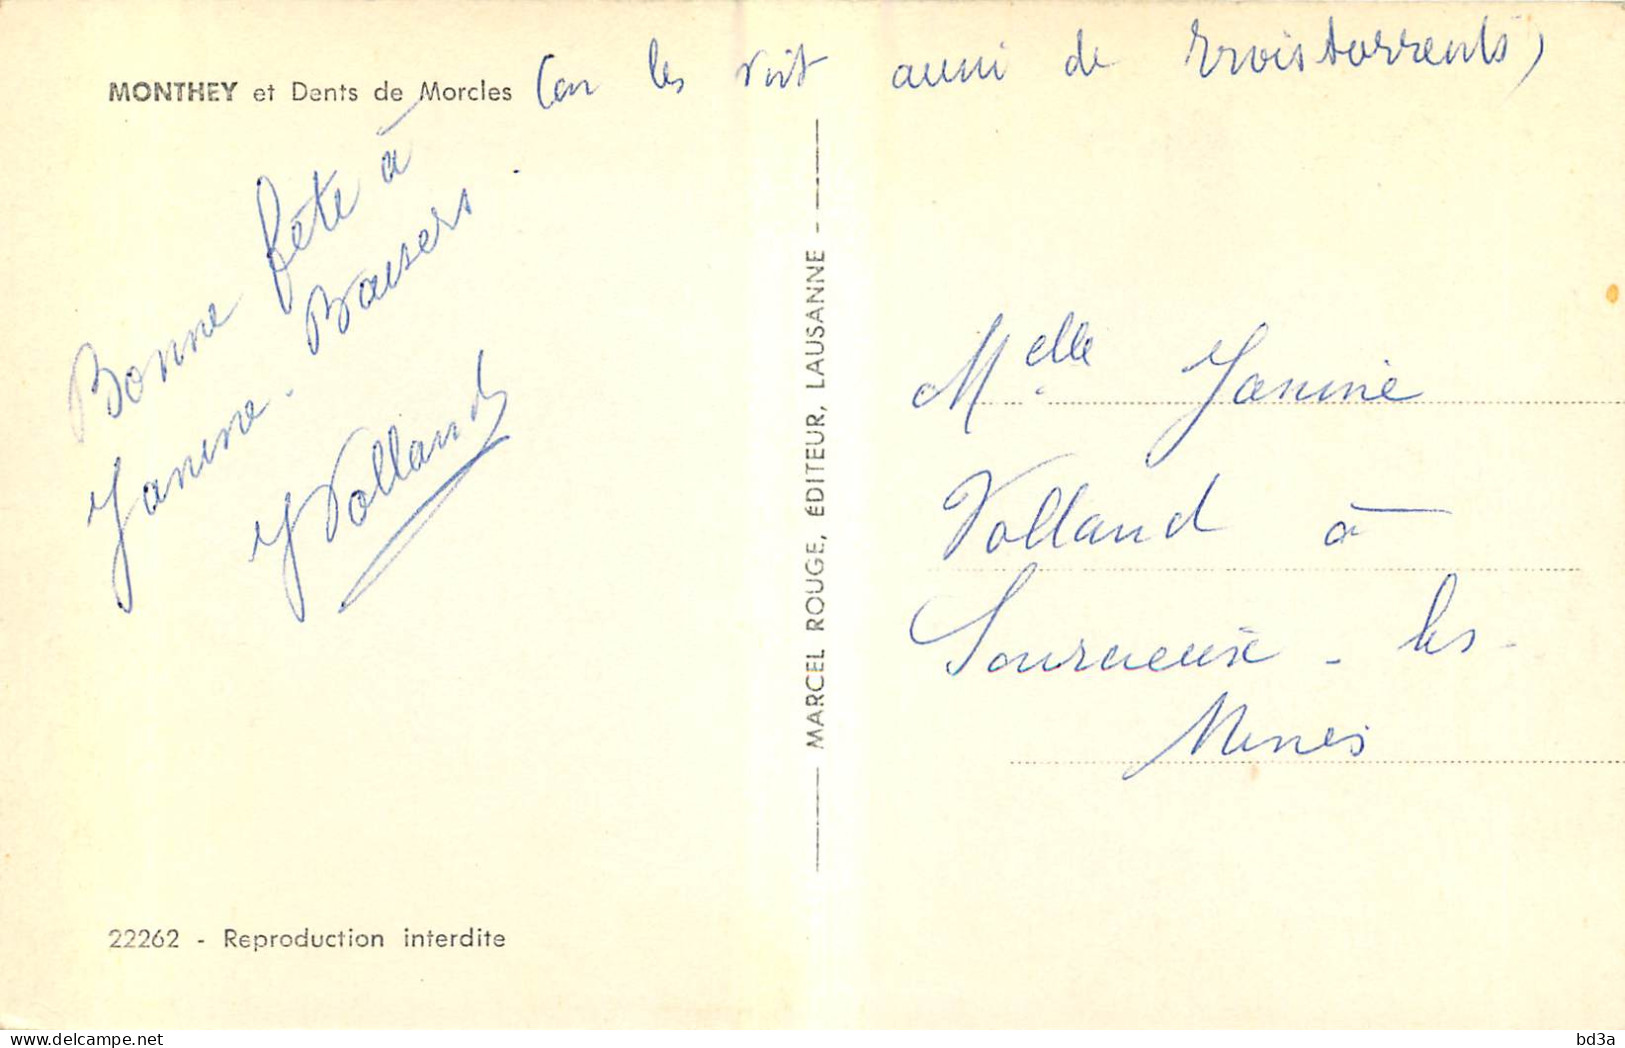 MONTHEY et Dents de Morcles (on les voit aussi de Troistorrents)
Bonne fête à
Janine. Baisers.
Y Volland
MARCEL ROUGE, ÉDITEUR, LAUSANNE -
Melle Janine
Volland à
Sourcieux-les-
Mines
22262 - Reproduction interdite
delcampe.net
bd3a